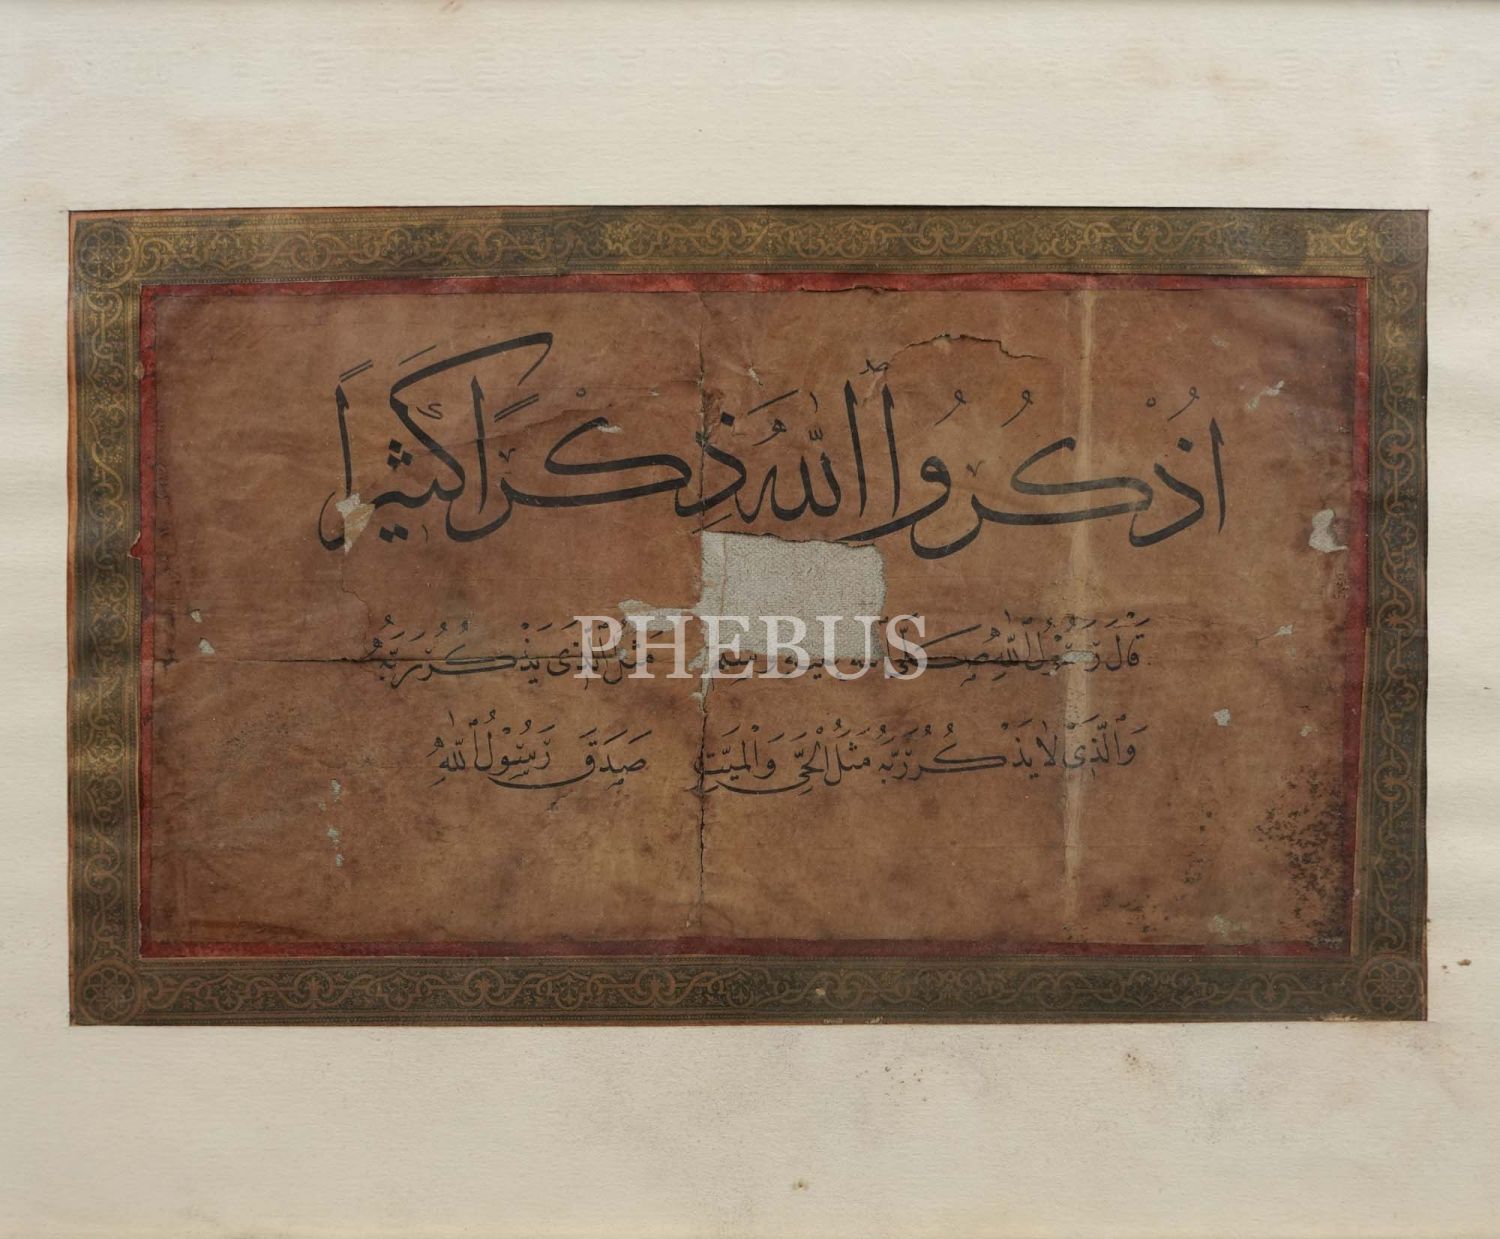 اُذْكُرُوا اللّٰهَ ذِكْرًا كَثِيرًا
قَالَ رَسُولُ اللّٰهِ صَلَّى عليه وسلم مَثَلُ الَّذِي يَذْكُرُ رَبَّهُ
وَالَّذِي لَا يَذْكُرُ رَبَّهُ مَثَلُ الْحَيِّ وَالْمَيِّتِ صَدَقَ رَسُولُ اللّٰهِ
PHEBUS